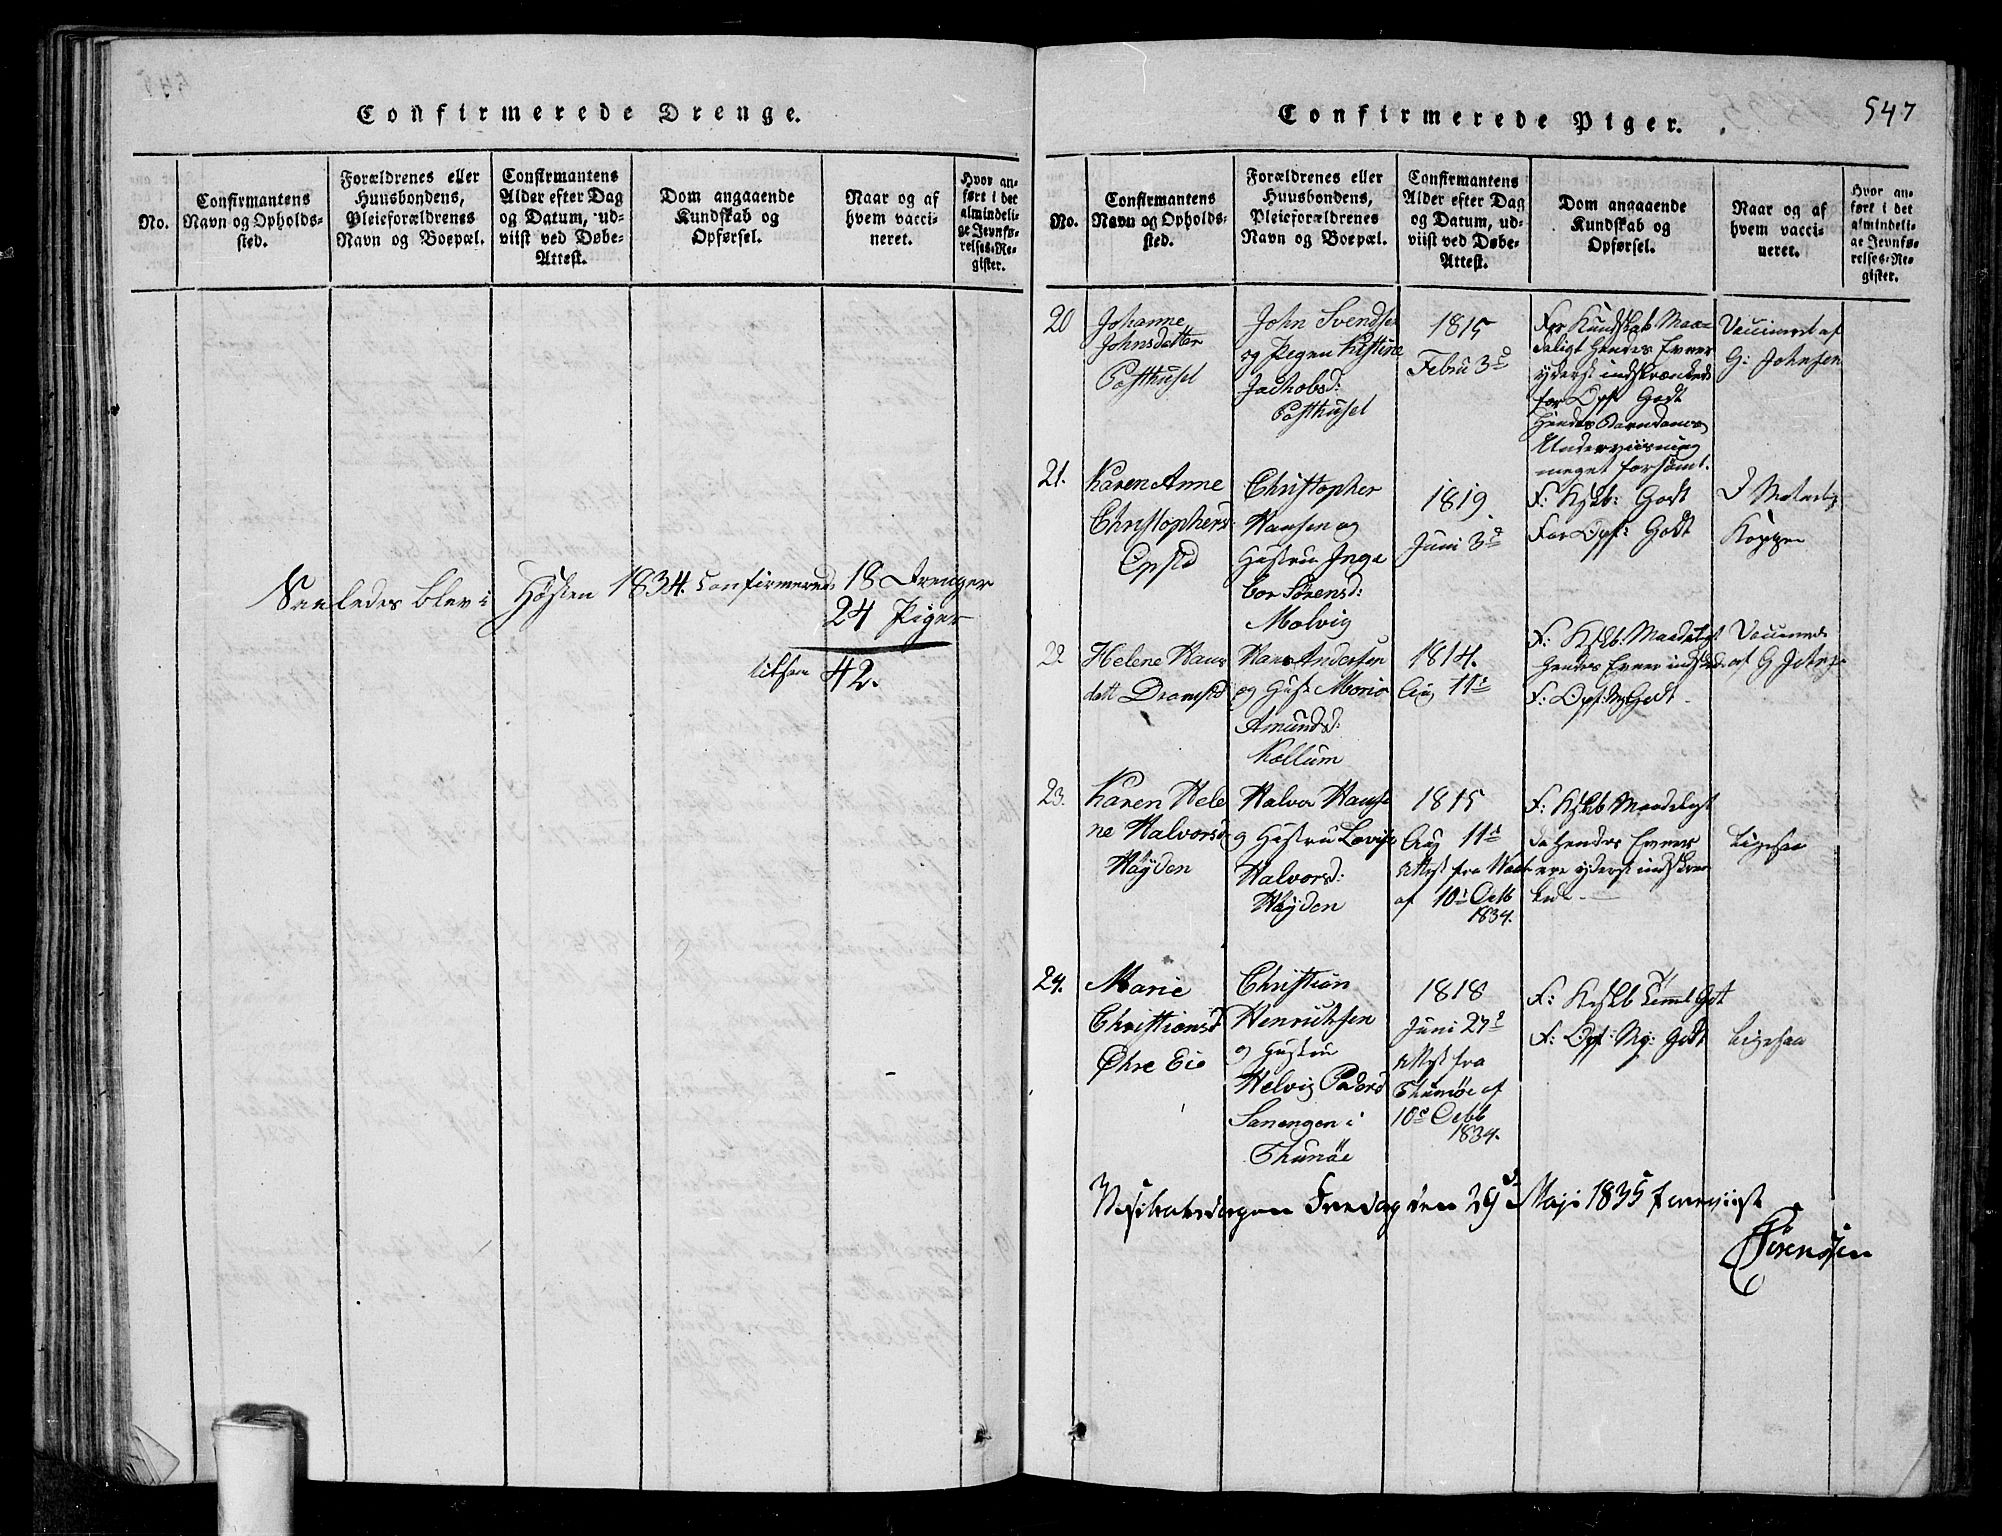 Confirmerede Drenge.
No.
Confirmantens
Navn og Opholds-
sted.
Forældrenes eller
Huusbondens,
Pleieforældrenes
Navn og Boepæl.
Confirmantens
Alder efter Dag
og Datum, ud-
viist ved Døbe-
Attest.
Dom angaaende
Kundskab og
Opførsel.
Naar og af
hvem vacci-
neret.
Hvor an-
ført i det
almindeli-
ge Jevnfø-
relses-Re-
gister.
Saaledes blev i Høsten 1834. Confirmered 18 Drenger
24 Piger
42.
Confirmerede Piger.
547
No.
Confirmantens
Navn og Opholds-
sted.
Forældrenes eller
Huusbondens,
Pleieforældrenes
Navn og Boepæl.
Confirmantens
Alder efter Dag
og Datum, ud-
viist ved Døbe-
Attest.
Dom angaaende
Kundskab og
Opførsel.
Naar og af
hvem vacci-
neret.
Hvor an-
ført i det
almindeli-
ge Jevnfø-
relses-Re-
gister.
20
Johanne
Johnsdatter
Posthusel
John Svendsen
og Pegen Kistine
Jachobsd:
Posthusel
1815
Febru 3d
For Kundskab Maa-
deligt Hendes Evner
yderst indskrænkede
for Opf Godt
Hendes Barndoms
Underviisning
meget forsømt.
Vaccineret af
G: Johnsen
21.
Karen Anne
Christophers
Christopher
Hansen og
Hustru Inge
bor Sørensd:
Molvig
1819.
Juni 3d
F: Kskb: Godt
For Opf: Godt
Koppe
22
Helene Hans
datt
Hans Andersen
og Hust Maria
Amundsd:
Kollum
1814.
Aug 11t
F: Kskb: Maadeligt
Hendes Evner indsk
F: Opf: Mg Godt.
Vaccinered
af G Johns
23.
Karen Hele
ne Halvorsd
Høyden
Halvor Hansen
og Hustru Lovise
Halvorsd:
Høyden
1815
Aug 11t
Attest fra
af 10t Octb
1834.
F: Kskb Maadeligt
da Hendes Evner
ere yderst indskræn
kede
Ligesaa
24.
Marie
Christiansd
Øhre Eie
Christian
Henrichsen
og Hustru
Helvig Pedersd
Sanengen i
Thunøe
1818
Juni 27d
Attest fra
Thumøe af
10de Octb
1834.
F: Kskb Teml Got
F: Opf: Mg: Godt
Ligesaa
Fredag den 29d Maji 1835 foreviist
Sørenssen